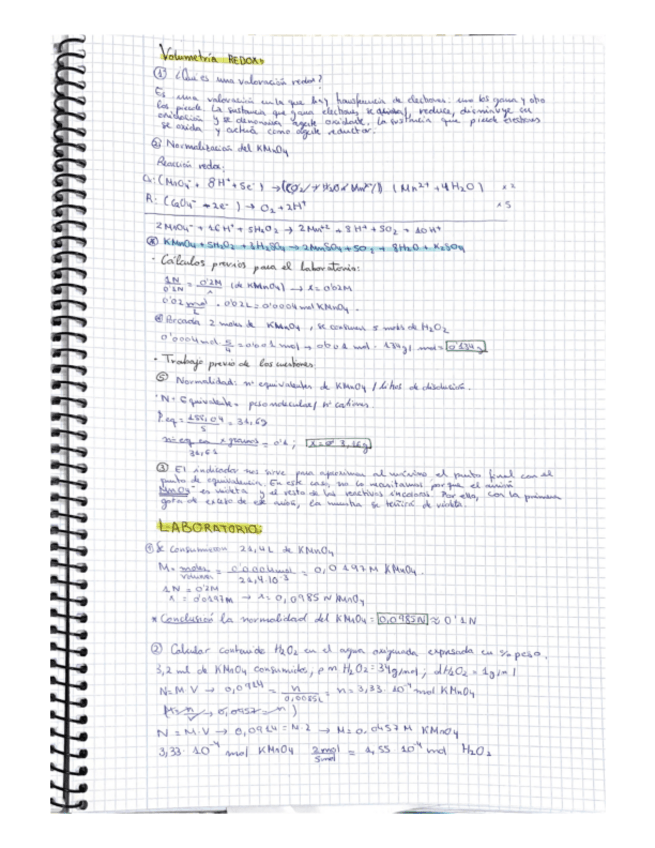 Volumetría REDOX
① ¿Qué es una valoración redox?
Es una valoración en la que hay transferencia de electrones: uno los gana y otro
los pierde. La sustancia que gana electrones, se reduce, disminuye su
oxidación y se denomina agente oxidante. La sustancia que pierde electrones
se oxida y actúa como agente reductor.
② Normalización del KMnO4
Reacción redox:
O: (MnO4⁻ + 8H⁺ + 5e⁻) → (Mn²⁺ + 4H2O) x 2
R: → O2 + 2H⁺ x 5
2MnO4⁻ + 16H⁺ + 5H2O2 → 2Mn⁺² + 8H + 5O2 + 10H⁺
KMnO4 + 5H2O2 + 3H2SO4 → 2MnSO4 + 5O2 + 8H2O + K2SO4
· Cálculos previos para el laboratorio:
(de KMnO4) → x = 0'02M
0'02 mol/L · 0'02L = 0'0004 mol KMnO4.
Por cada 2 moles de KMnO4, se 5 mols de H2O2
0'0004 mol 0'134g
· Trabajo previo de las cuestiones
⑤ Normalidad: nº equivalentes de KMnO4 / litros de disolución.
· N = Equivalente = peso molecular / nº
P eq = 158,04 / 5 = 31,6
= 0'1;
③ El indicador nos sirve para aproximar al máximo el punto final con el
punto de equivalencia. En este caso, no lo necesitamos porque el anión
MnO4⁻ es violeta y el resto de los reactivos incoloros. Por ello, con la primera
gota de exceso de ese anión, la muestra se teñirá de violeta.
LABORATORIO:
① Se consumieron 21,4 L de KMnO4
M = moles / volumen = 0'0004 mol / 21,4·10⁻³ = 0,0197 M KMnO4.
1N = 0'2M
x = 0'0197M → x = 0,0985 N KMnO4
* Conclusión la normalidad del KMnO4 = 0,0985N ≈ 0'1N
② Calcular contenido H2O2 en el agua oxigenada expresada en % peso.
3,2 ml de KMnO4 consumidos, pm H2O2 = 34g/mol; dH2O2 = 1g/ml
N = M·V → = n = 3,33·10⁻⁴ mol KMnO4
N = M·V → = M·2 → M = 0,0457 M KMnO4
3,33·10⁻⁴ mol KMnO4 2mol / 5mol = 1,55 10⁻⁴ mol H2O2